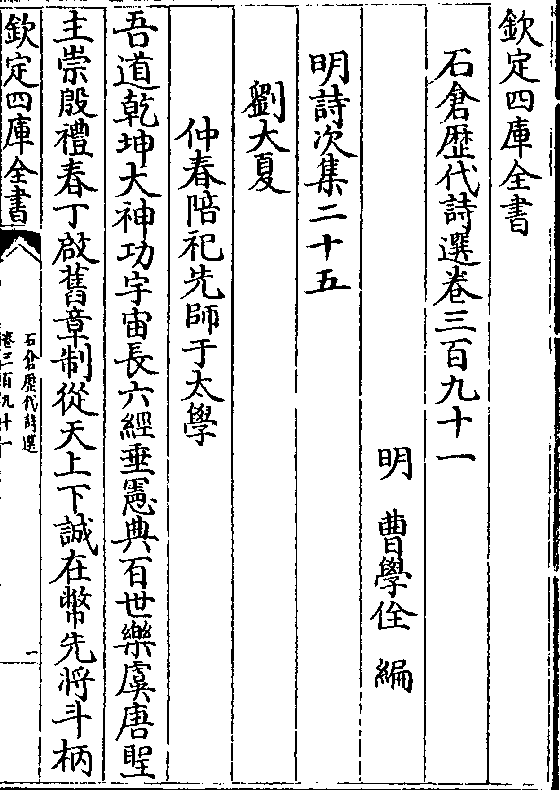 欽定四庫全書
石倉歴代詩選卷三百九十一
明 曹學佺 編
明詩次集二十五
劉大夏
仲春陪祀先師于太學
吾道乾坤大神功宇宙長六經垂憲典百世樂虞唐聖
主崇殷禮春丁啟舊章制從天上下誠在幣先將斗柄
欽定四庫全書
石倉歴代詩選
卷三百九十一
一